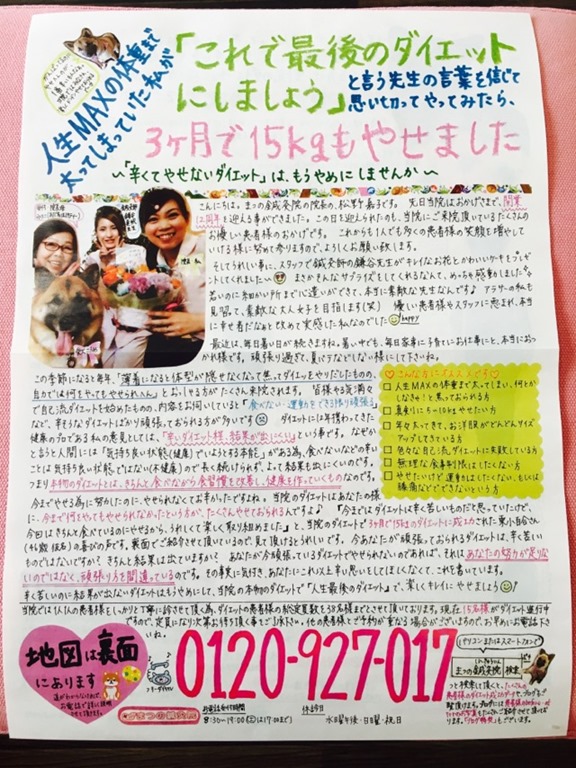 人生MAXの体重まで
太ってしまっていた私が
「これで最後のダイエット
にしましょう」
と言う先生の言葉を信じて
思い切ってやってみたら、
3ヶ月で15kgもやせました
〜「辛くてやせないダイエット」は、もうやめにしませんか〜
こんにちは。まつの鍼灸院の院長、松野
先日当院はおかげさまで、開業
周年を迎える事ができました。この日を迎えられたのも、当院にご来院頂いているたくさんの
お優しい患者様のおかげです。これからも1人でも多くの患者様の笑顔を増やして
いける様に努めて参りますので、よろしくお願い致します。
そしてうれしい事に、スタッフで鍼灸師の鎌谷先生がキレイなお花とかわいいケーキをプレゼ
ントしてくれました
まさかそんなサプライズをしてくれるなんて、めっちゃ感動しました
若いのに細かい所までに違いができて、本当に素敵な先生なんです♪ アラサーの私も
見習って、素敵な大人女子を目指します(笑) 優しい患者様やスタッフに恵まれ、本当
に幸せ者だなぁと改めて実感した私なのでした happy
最近は、毎日暑い日が続きますね。暑い中でも、毎日家事に子育てにお仕事にと、本当におつ
かれ様です。頑張り過ぎて、夏バテなどしない様にして下さいね。
この季節になると毎年、「薄着になると体型が隠せなくなって焦ってダイエットをやりだしたものの、
自力では何をやってもやせられへん」とおっしゃる方がたくさん来院されます。皆様やる気満々
で自己流ダイエットを始めたものの、内容をお伺いしていると「食べない・運動をできる限り頑張る」
など、辛そうなダイエットばかり頑張っておられる方が多いです
ダイエットには年携わってきた
健康のプロである私の意見としては、「辛いダイエット程、結果が出にくい」という事です。なぜか
と言うと人間には「気持ち良い状態(健康)でいようとする本能」がある為、食べないなどの辛い
ことは気持ち良い状態ではない(不健康)ので長く続けられず、よって結果も出にくいのです。
つまり本物のダイエットとは、きちんと食べながら食習慣を改善し、健康を作っていくものなのです。
♡こんな方にオススメです♡
□ 人生MAXの体重まで太ってしまい、何とか
しなきゃ!と焦っておられる方
□ 真剣に5〜10kgやせたい方
□ 年々太ってきて、お洋服がどんどんサイズ
アップしてきている方
□ 色々な自己流ダイエットに失敗している方
□ 無理な食事制限はしたくない方
□ やせたいけど運動はしたくない、もしくは
腰痛などでできないという方
今までやせる為に努力したのに、やせられなくてお辛かったですよね。当院のダイエットはあなたの様
に、今まで何をやってもやせられなかったという方が、たくさんやせておられるんですよ♪ 「今まではダイエットは辛くて苦しいものだと思っていたけど、
今回はきちんと食べているのにやせるから、うれしくて楽しく取り組めました」と、当院のダイエットで3ヶ月で15kgのダイエットに成功された東小谷さん
(46歳 仮名)の喜びの声です。裏面でご紹介させて頂いているので、見て頂けるとうれしいです。今あなたが頑張っておられるダイエットは、辛く苦しい
ものではないですか? きちんと結果は出ていますか? あなたが今頑張っているダイエットでやせられないのであれば、それはあなたの努力が足りな
いのではなく、頑張り方を間違っているのです。その事実に気付き、あなたにこれ以上辛い思いをしてほしくなくて、これを書いています。
辛く苦しいのに結果が出ないダイエットはもうやめにして、当院の本物のダイエットで「人生最後のダイエット」で、楽しくキレイにやせましょう
当院では1人1人の患者様をしっかりと丁寧に診させて頂く為、ダイエットの患者様の総定員数を38名様までとさせて頂いております。現在15名様がダイエット進行中
ですので、定員になり次第お待ち頂く事をご了承下さい。他の患者様でご予約が重なる場合がございますので、お早めにお電話下さ
いね。
地図は裏面
にあります
道がわからない方も、
お電話で
させて頂きます。
フリーダイヤル
0120-927-017
まつの鍼灸院
お電話受付時間
8:30〜19:00(土は17:00まで)
休診日
水曜午後・日曜・祝日
パソコンまたはスマートフォンで
まつの鍼灸院 検索
と検索して頂くと、たくさんの